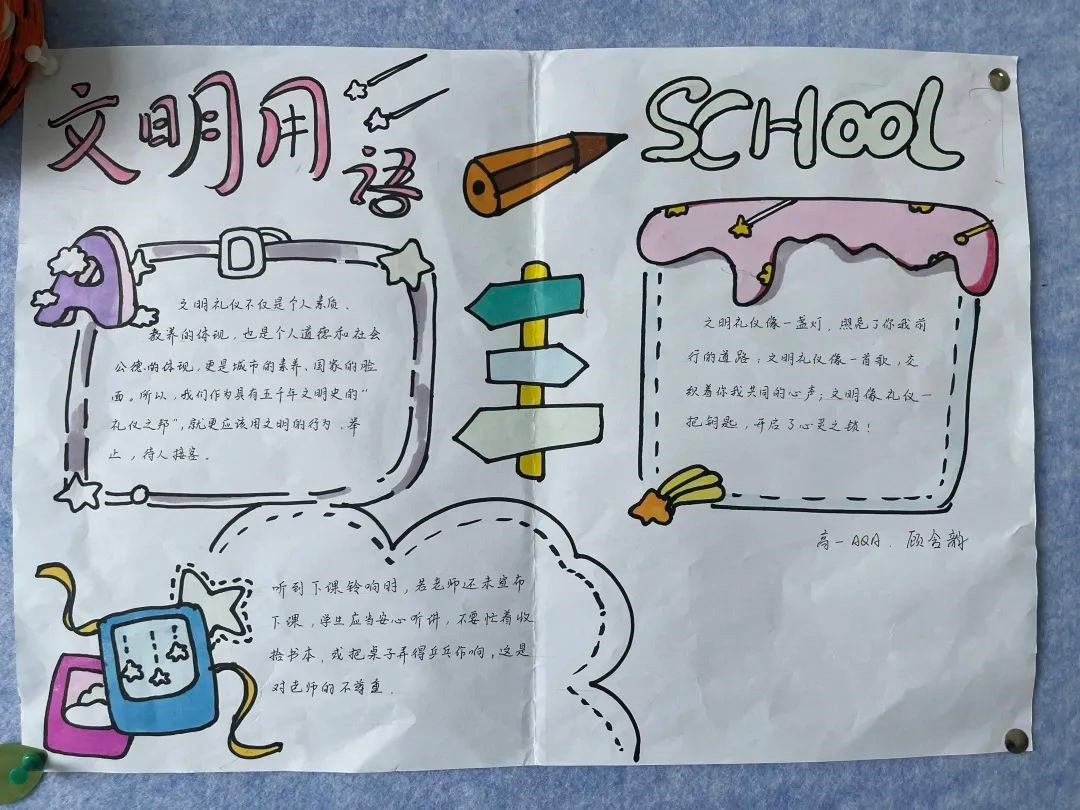 文明用语
SCHOOL
文明礼仪不仅是个人素质、
教养的体现,也是个人道德和社会
公德的体现,更是城市的素养、国家的脸
面。所以,我们作为具有五千年文明史的“
礼仪之邦”,就更应该用文明的行为、举
止,待人接客。
文明礼仪像一盏灯,照亮了你我前
行的道路;文明礼仪像一首歌,交
织着你我共同的心声;文明像礼仪一
把钥匙,开启了心灵之锁!
高一AQA、顾含韵
听到下课铃响时,若老师还未宣布
下课,学生应当安心听讲,不要忙着收
拾书本,或把桌子弄得乒乓作响,这是
对老师的不尊重.